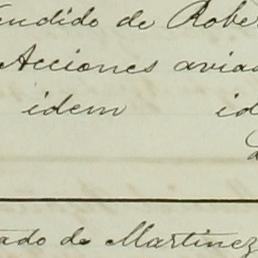 endido de Robe
Acciones avia
idem id
ado de Martinez